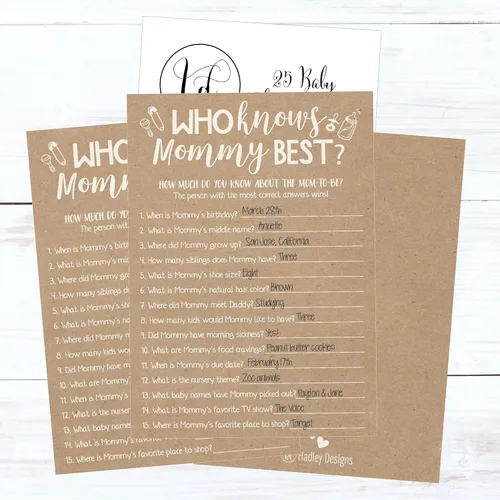 25 Baby
WHO knows
Mommy BEST?
HOW MUCH DO YOU KNOW ABOUT THE MOM-TO-BE?
The person with the most correct answers wins!
1. When is Mommy's birthday? March 28th
2. What is Mommy's middle name? Annette
3. Where did Mommy grow up? San Jose, California
4. How many siblings does Mommy have? Three
5. What is Mommy's shoe size? Eight
6. What is Mommy's natural hair color? Brown
7. Where did Mommy meet Daddy? Studying
8. How many kids would Mommy like to have? Three
9. Did Mommy have morning sickness? Yes!
10. What are Mommy's food cravings? Peanut butter cookies
11. When is Mommy's due date? February 17th
12. What is the nursery theme? Zoo animals
13. What baby names have Mommy picked out? Payton & Jane
14. What is Mommy's favorite TV show? The Voice
15. Where is Mommy's favorite place to shop? Target
Hadley Designs
WHO
Mommy
HOW MUCH DO YOU
The person with
1. When is Mommy's birth
2. What is Mommy's mid
3. Where did Mommy
4. How many siblings
5. What is Mommy's sh
6. What is Mommy's
7. Where did Mommy
8. How many kids
9. Did Mommy have
10. What are Mommy
11. When is Mommy's
12. What is the nurse
13. What baby names
14. What is Mommy's
15. Where is Mommy's favorite place to shop?